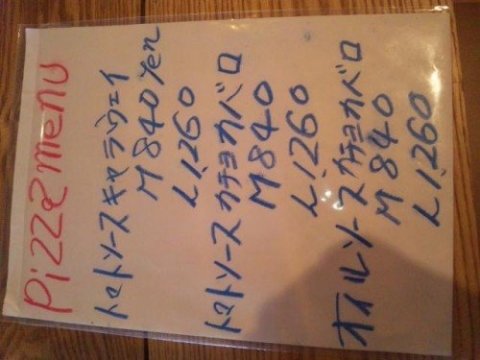 Pizza menu
トマトソースキャラウェイ
M 840 Yen
L 1,260
トマトソースカチョカバロ
M 840
L 1,260
オイルソースカチョカバロ
M 840
L 1,260